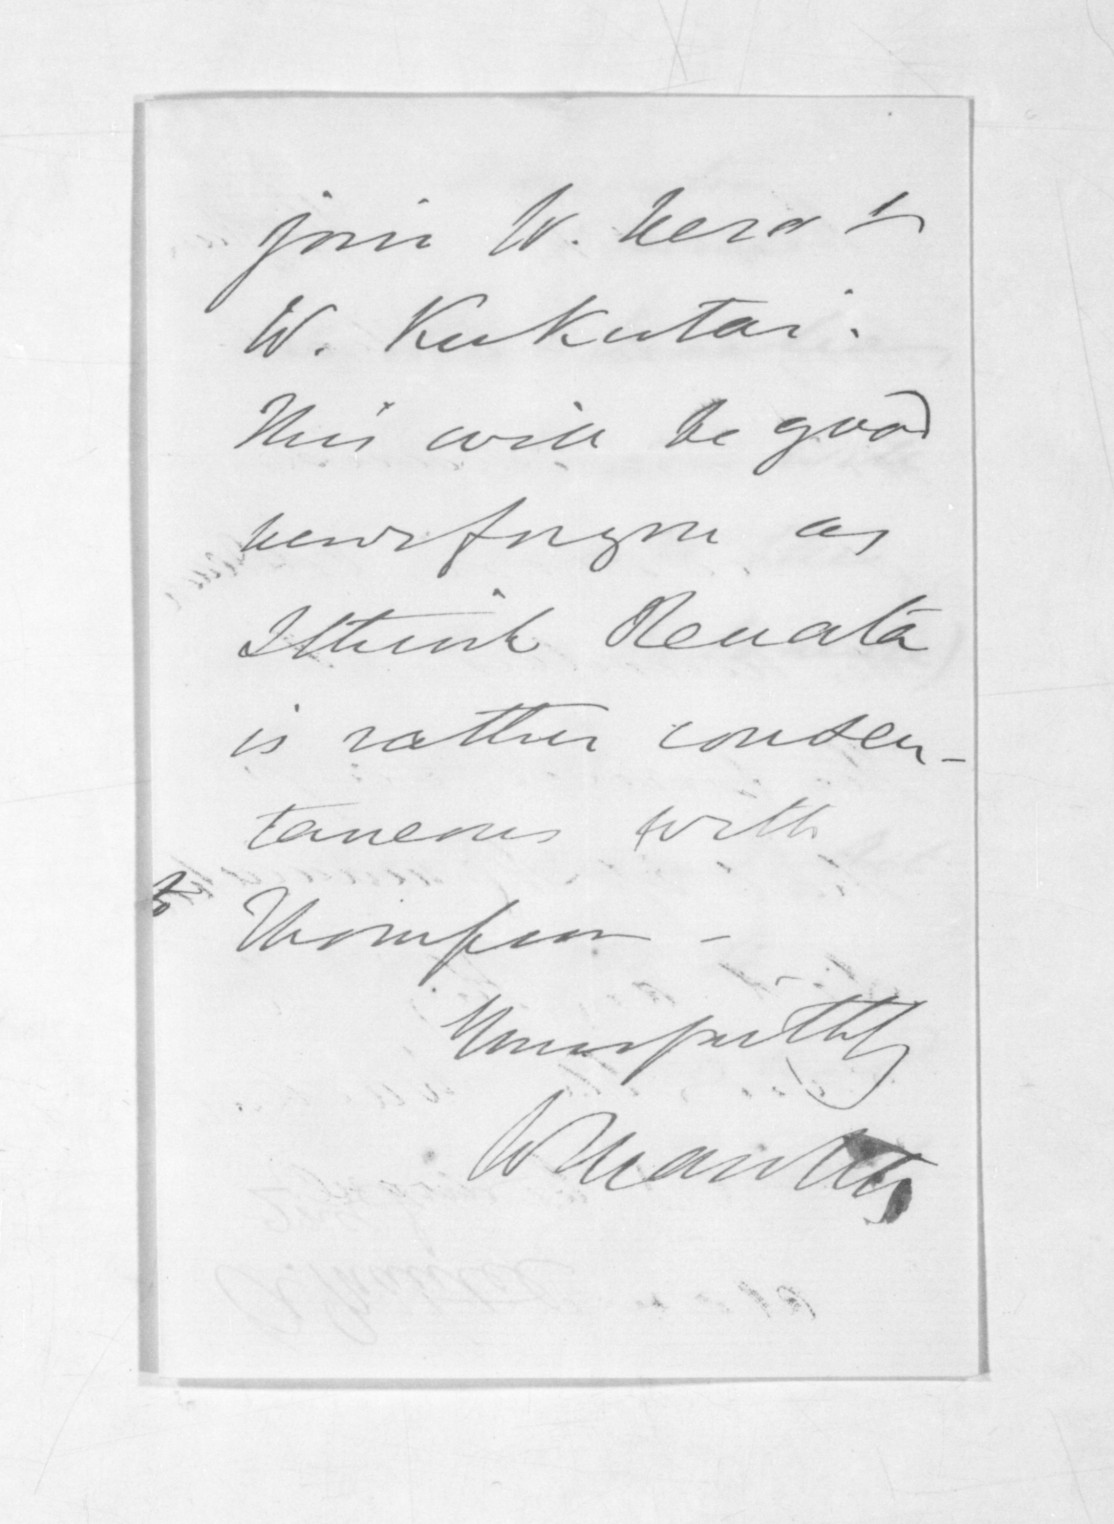 join W. Nera &
W. Kukutai.
This will be good
news for you as
I think Renata
is rather consen-
taneous with
Thompson -
Yours faithfully
W Mantell